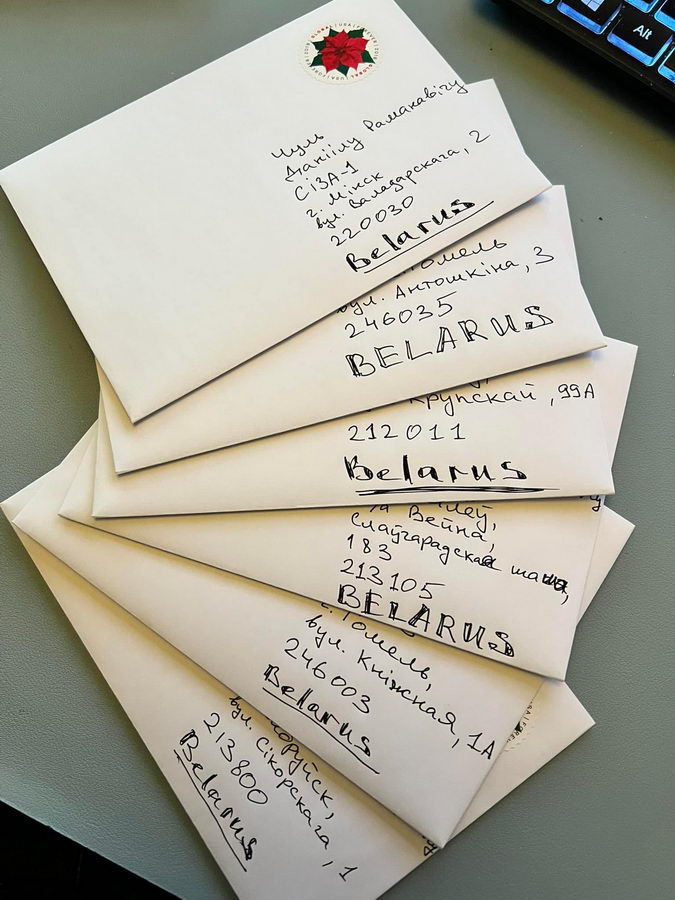 Чуль
Данiiлу Рамакавiчу
СIЗА-1
г. Мiнск
вул. Валадарскага, 2
220030
Belarus
Гомель
вул. Антошкiна, 3
246035
BELARUS
Крупскай, 99А
212011
Belarus
лёў,
Вейна,
Слаўгарадская шаша,
183
213105
BELARUS
г. Гомель,
вул. Кнiжная, 1А
246003
Belarus
бруйск,
вул. Сiкорскага, 1
213800
Belarus
Alt